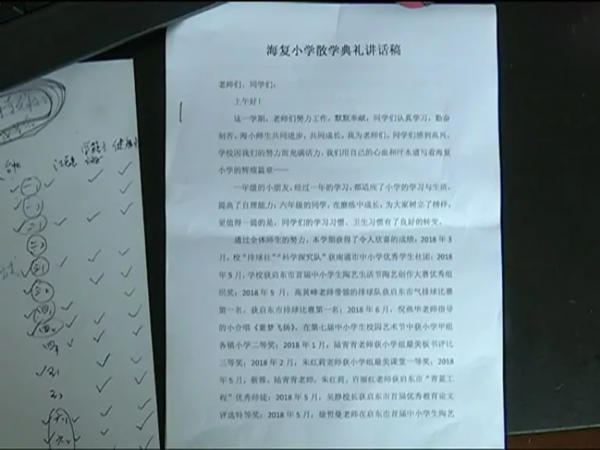 海复小学散学典礼讲话稿
老师们，同学们：
上午好！
这一学期，老师们努力工作，默默奉献，同学们认真学习，勤奋
刻苦，海小师生共同进步，共同成长。我为老师们、同学们感到高兴。
学校因我们的努力而充满活力，我们用自己的心血和汗水谱写着海复
小学的辉煌篇章——
一年级的小朋友，经过一年的学习，都适应了小学的学习与生活，
提高了自理能力；六年级的同学，在磨练中成长，为大家树立了榜样。
更值得一提的是，同学们的学习习惯、卫生习惯有了良好的转变。
通过全体师生的努力，本学期获得了令人欣喜的成绩：2018 年 3
月，校“排球社”“科学探究队”获南通市中小学优秀学生社团；2018
年 5 月，学校获启东市首届中小学生陶艺生活节陶艺创作大赛优秀组
织奖；2018 年 5 月，高黄峰老师带领的排球队获启东市气排球比赛
第一名，获启东市排球比赛第一名；2018 年 6 月，倪燕华老师指导
的小合唱《童梦飞扬》，在第七届中小学生校园艺术节中获小学甲组
各镇小学二等奖；2018 年 1 月，陆青青老师获小学组最美板书评比
三等奖；2018 年 2 月，朱红莉老师获小学组最美课堂一等奖；2018
年 5 月，陆青青老师，朱红莉、许丽红老师获启东市“青蓝工
程”优秀师徒；2018 年 5 月，吴静校长获启东市首届优秀教育论文
评选特等奖；2018 年 5 月，徐哲曼老师在启东市首届中小学生陶艺